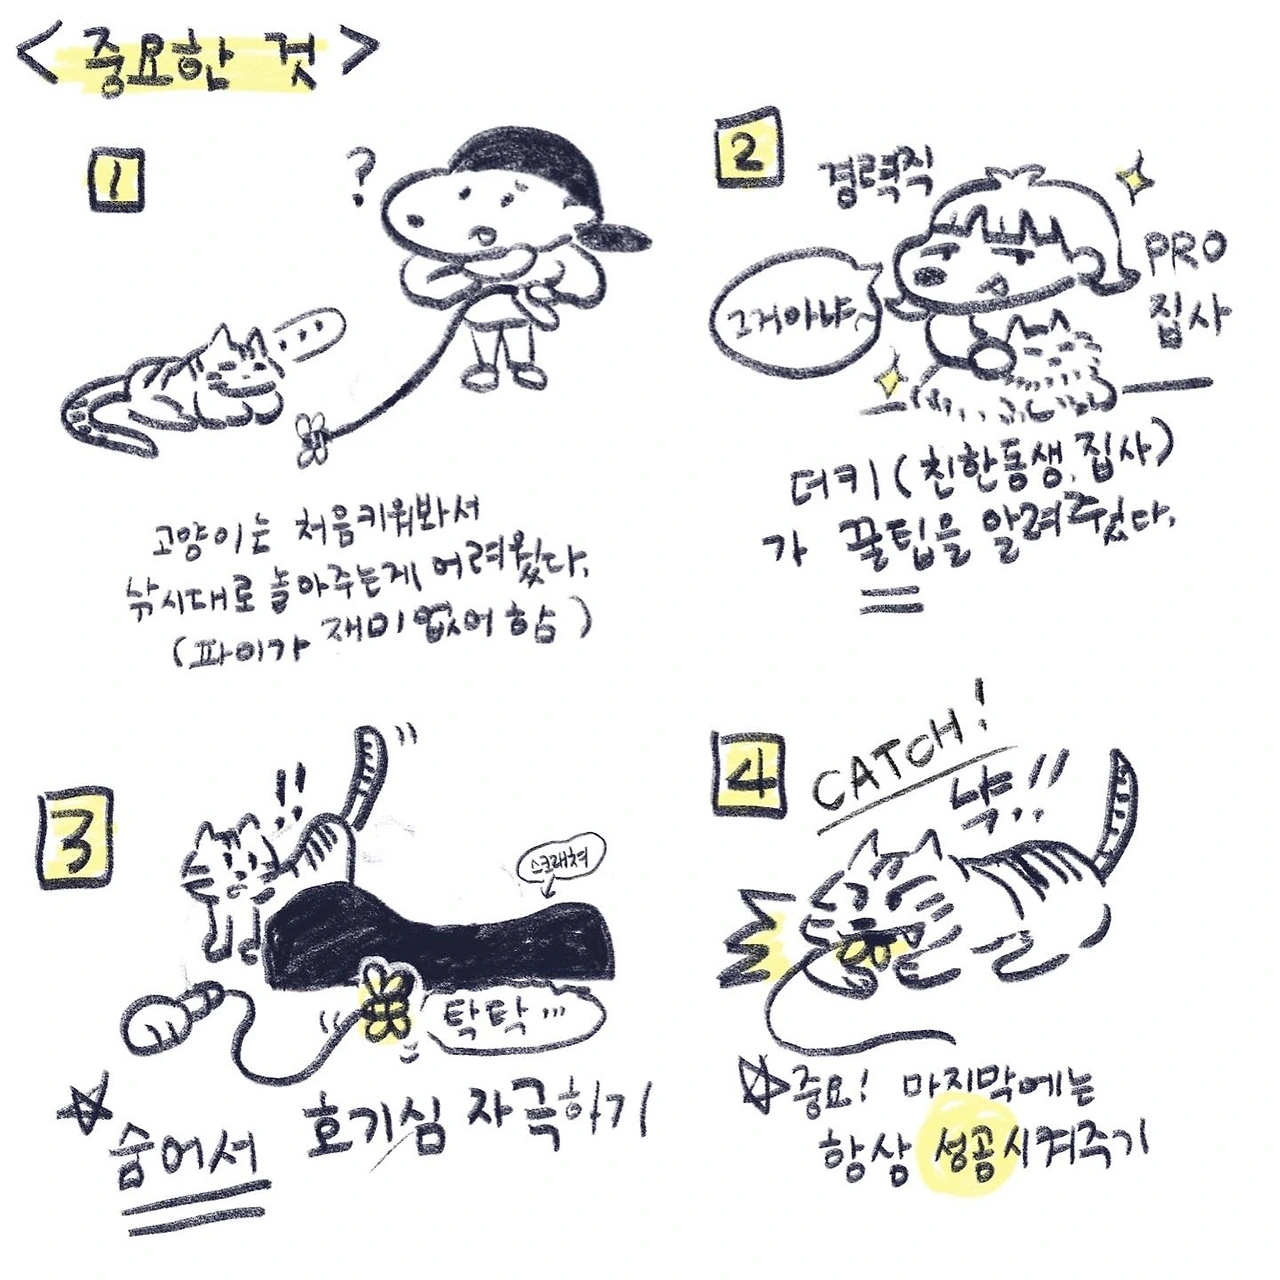 <중요한 것>
1
?
...
고양이는 처음키워봐서
낚시대로 놀아주는게 어려웠다.
(파이가 재미없어 함)
2
경력직
PRO
집사
그거아냐
더키(친한동생, 집사)
가 꿀팁을 알려주웠다.
3
!!
스크래쳐
탁탁...
숨어서 호기심 자극하기
4
CATCH!
냑!!
중요! 마지막에는
항상 성공시켜주기